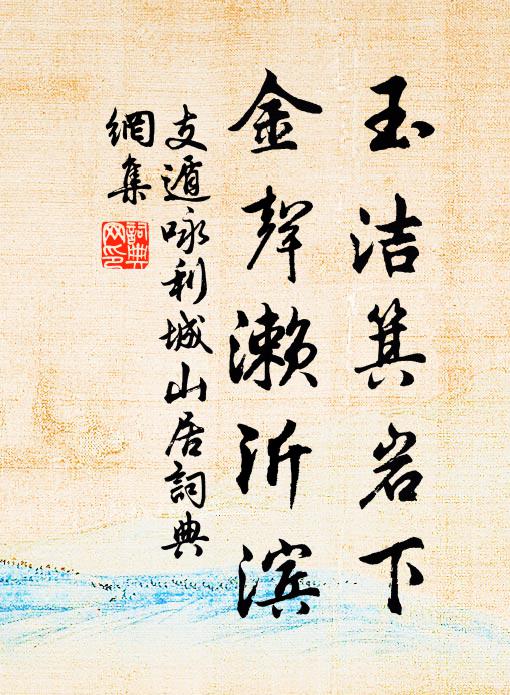 玉洁箕岩下
金聲濑沂滨
支遁咏利城山居詞典
網集
詞典
网印